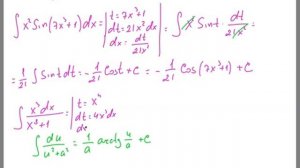 ∫x²Sin(7x³+1)dx = | t=7x³+1 | dt=21x²dx | dx=dt/21x² | = ∫x² Sint·dt/21x² =
=1/21 ∫Sintdt=-1/21 Cost+C=-1/21 Cos(7x³+1)+C
∫x³dx/x⁸+1 = | t=x⁴ | dt=4x³dx | dx
∫du/u²+a² = 1/a arctg u/a +C